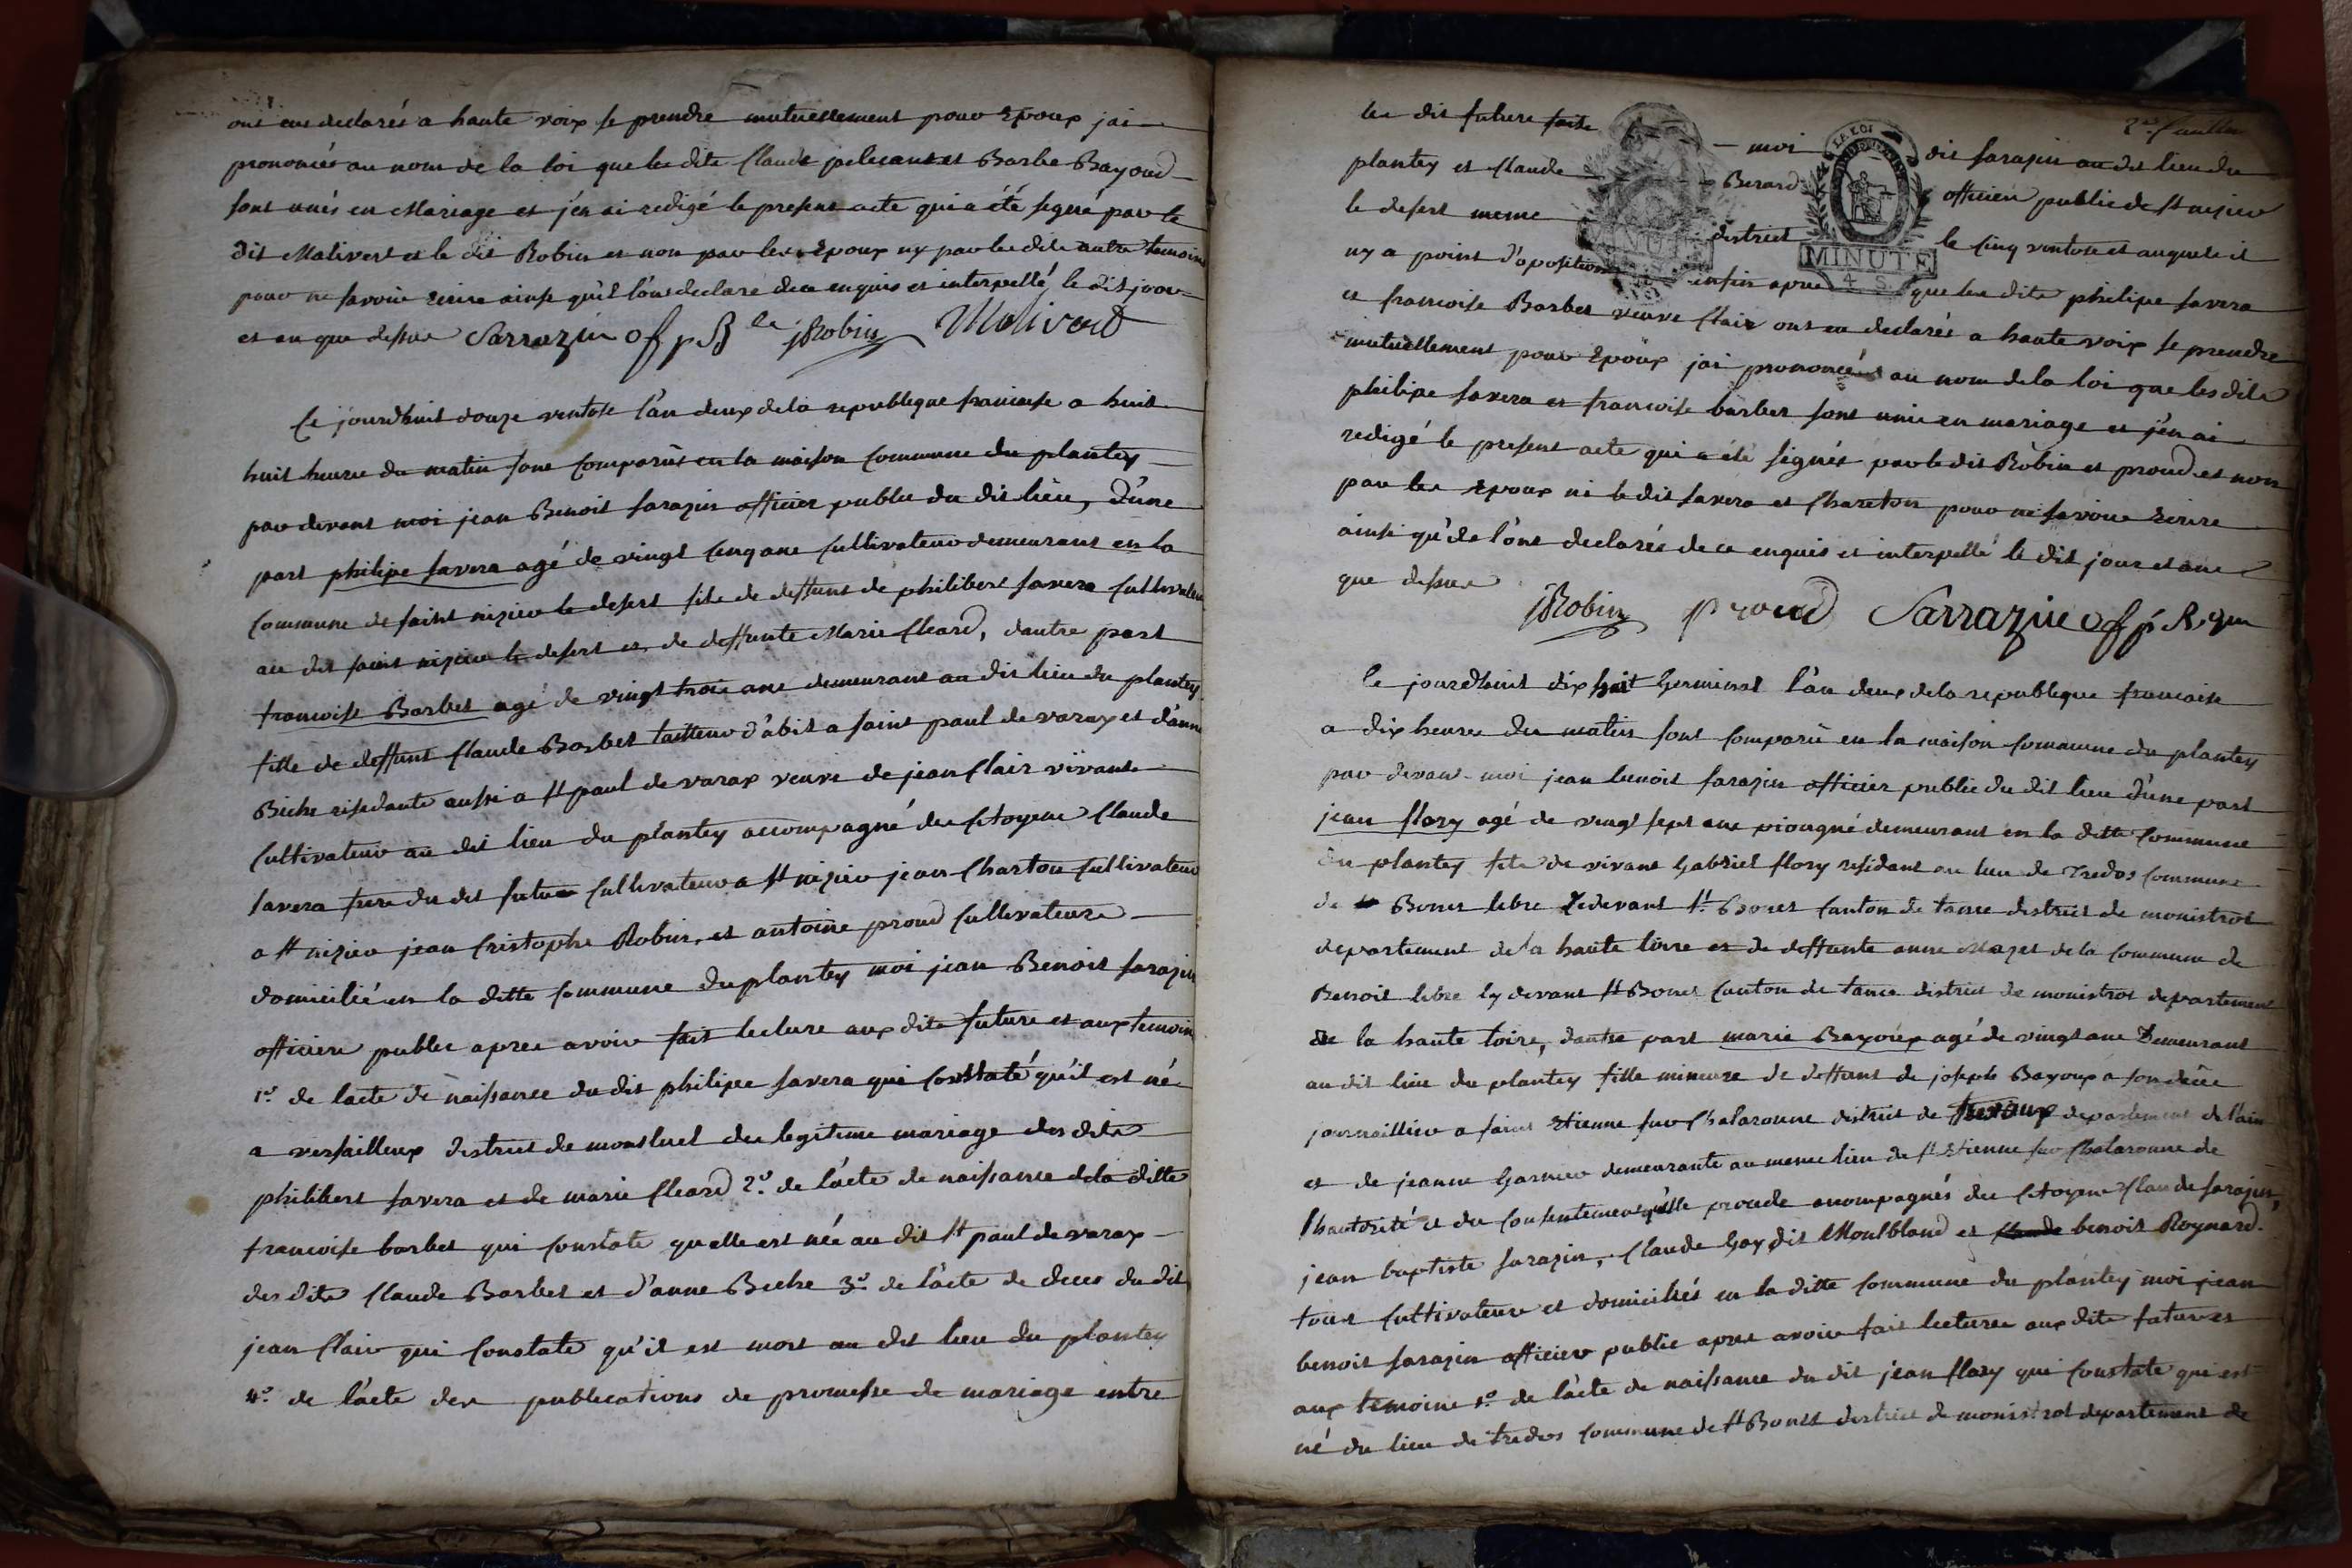 ont eus declarés a haute voix se prendre mutuellement pour Epoux jai
prononcés au nom de la loi que les dits Claude et Barbe Bayoud
sont unis en Mariage et j'en ai redigé le present acte qui a été signé par le
dit Malivert et le dit Robin et non par les Epoux ny par les dits autre temoins
pour ne savoir ecrire ainsi qu'il l'ont declaré de ce enquis et interpellé, le dit jour
et an que dessus Sarrazin of p JRobin Malivert
Ce jourdhuit douze ventose l'an deux de la republeque francaise a huit
huit heures du matin sont comparus en la maison commune du plantey
par devant moi jean Benoit sarazin officier public du dit lieu, d'une
part philipe savera agé de vingt cinq ans cultivateur demeurant en la
commune de saint nizier le desert fils de deffunt de philibert savera cultivateur
au dit saint nizier le desert et de deffunte Marie Cleard, dautre part
francoise Barbet agé de vingt trois ans demeurant au dit lieu du plantey
fille de deffunt Claude Barbet tailleur d'abit a saint paul de varax et d'anne
Biche residante aussi a st paul de varax veuve de jean Clair vivant
cultivateur au dit lieu du plantey accompagné des citoyens Claude
savera frere du dit futur cultivateur a st nizier jean Charton cultivateur
a st nizier jean Cristophe Robin, et antoine proud cultivateurs
domicilié en la ditte commune du plantey moi jean Benoit sarazin
officier public apres avoir fait lecture aux dits futurs et aux temoins
1º. de lacte de naissance du dit philipe savera qui constaté qu'il est né
a versailleux district de montluel du legitime mariage des dits
philibert savera et de marie Cleard 2º. de l'acte de naissance de la ditte
francoise barbet qui constate quelle est née au dit st paul de varax
des dits Claude Barbet et d'anne Biche 3º. de l'acte de deces du dit
jean Clair qui constate qu'il est mort au dit lieu du plantey
4º. de l'acte des publications de promesse de mariage entre
2e. feuillet
les dit futurs faite moi dit sarazin au dit lieu du
plantey et Claude Berard officier public de st nizier
le desert meme district le cinq ventose et auquels il
ny a point d'oposition enfin apres que les dits philipe savera
et francoise Barbet veuve Clair ont eu declarés a haute voix se prendre
mutuellement pour Epoux jai prononcés au nom de la loi que les dits
philipe savera et francoise barbet sont unis en mariage et j'en ai
redigé le present acte qui a été signés par le dit Robin et proud et non
par les Epoux ni le dit savera et Chareton pour ne savoir Ecrire
ainsi qu'ils l'ont declarés de ce enquis et interpellé le dit jour et ans
que dessus
JRobin proud Sarrazin of p
LA LOI
MINUTE
MINUTE
4 S.
le jourdhuit dix huit Germinal l'an deux de la republeque francaise
a dix heures du matin sont comparu en la maison commune du plantey
par devant moi jean benoit sarazin officier public du dit lieu d'une part
jean flory agé de vingt sept ans demeurant en la ditte commune
du plantey fils de vivant Gabriel flory residant au lieu de Tredos commune
de Bonet libre cidevant st. Bonet canton de tance district de monistrot
departement de la haute loire et de deffunte anne Mazet de la commune de
Benoit libre cy devant st Bonet canton de tance district de monistrot departement
de la haute loire, dautre part marie Bayoux agé de vingt ans Demeurant
au dit lieu du plantey fille mineure de deffunt de joseph Bayoux a son deces
journaillier a saint Etienne sur Chalaronne district de departement de l'ain
et de jeanne Garnier demeurante au meme lieu de st Etienne sur Chalaronne de
lhautorité et du consentement qu'elle procede acompagnés des citoyens Claude sarazin,
jean baptiste sarazin, Claude Gay dit Montbland et benoit Roynard.
tous cultivateurs et domiciliés en la ditte commune du plantey moi jean
benoit sarazin officier public apres avoir fait lectures aux dits futurs et
aux temoins 1º. de l'acte de naissance du dit jean flory qui constate qui est
né du lieu de tredos commune de st Bonet district de monistrot departement de